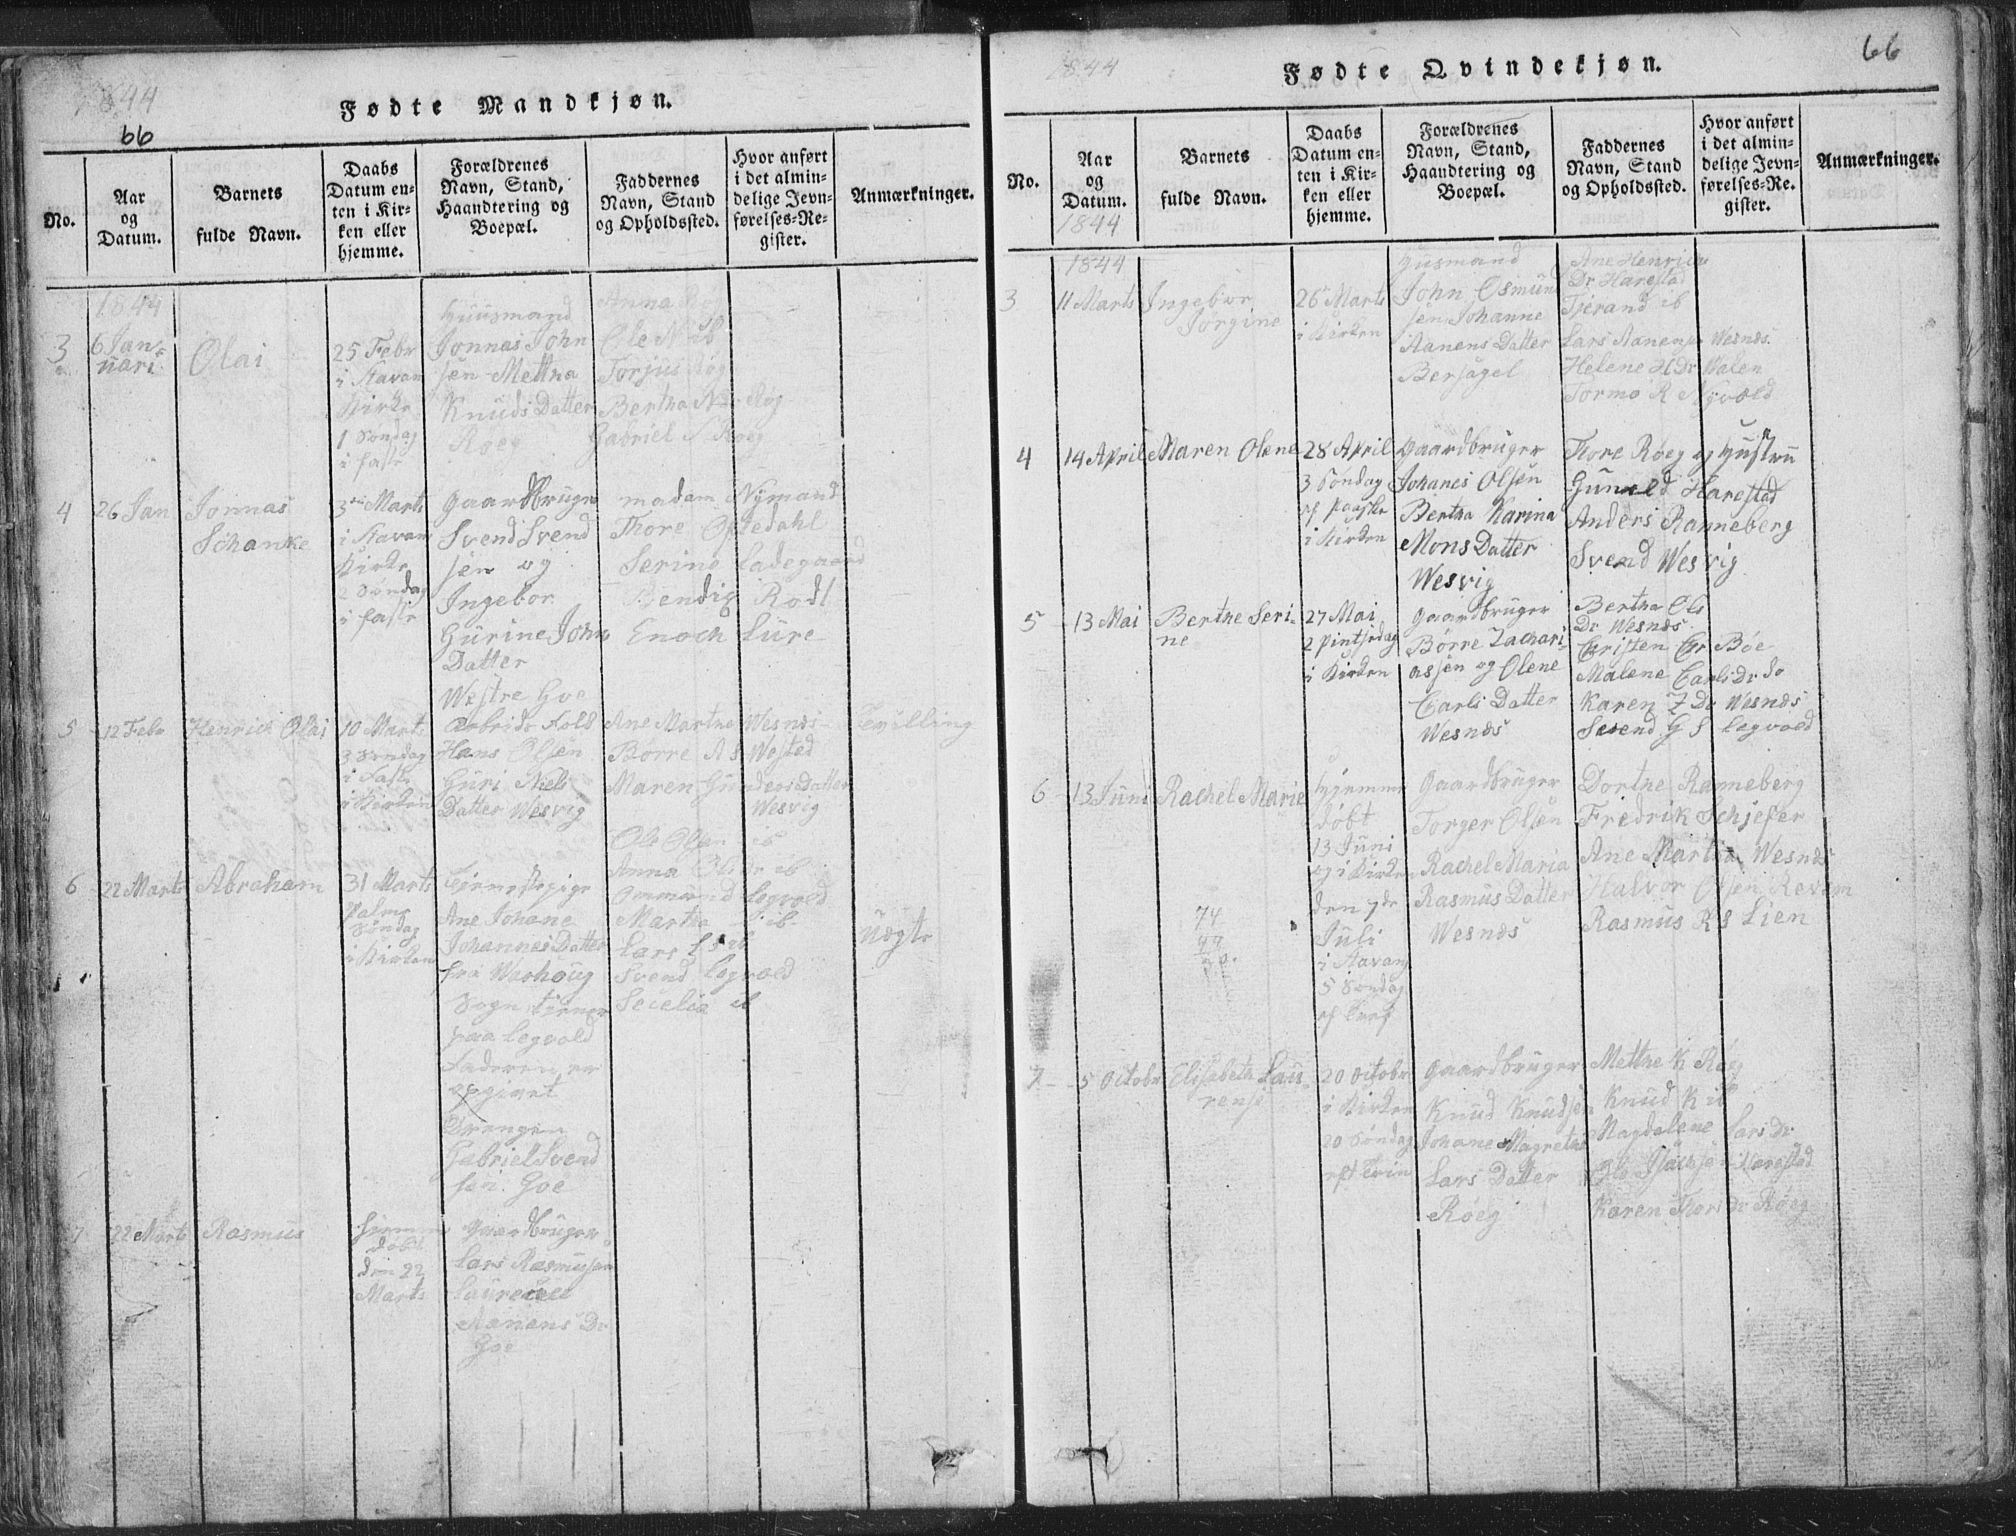 1844
66
Fødte Mandkjøn.
No.
Aar
og
Datum.
Barnets
fulde Navn.
Daabs
Datum en-
ten i Kir-
ken eller
hjemme.
Forældrenes
Navn, Stand,
Haandtering og
Boepæl.
Faddernes
Navn, Stand
og Opholdssted.
Hvor anført
i det almin-
delige Jevn-
førelses-Re-
gister.
Anmærkninger.
1844
3
6 Jan-
uari
Olai
25 Febr
i Stavan
Kirke
1 Søndag
i faste
Huusmand
Jonnas John
sen Mettha
Knuds Datter
Røeg
Anna Røg
Ole N ib
Torjus Røg
Bertha N Røg
Gabriel S Røeg
4
26 Jan
Jonnas
Schanke
3 Marts
i Stavan
Kirke
2 Søndag
i faste
Gaardbruger
Svend Svend
sen og
Ingebor
Gurine John
Datter
Westre Goe
madam Nymand
Thore Oftedahl
Serine Ladegaard
Bendig Rodl
Enoch Lure
5
12 Febr
Henrick Olai
10 Marts
3 Søndag
i Faste
i Kirken
Hans Olsen
Guri Niels
Datter Wesvig
Ane Marthe Wesnæs
Børre A S Westad
Maren Gundersdatter
Wesvig
Ole Olsen ib
Tevilling
6
22 Marts
Abraham
31 Marts
Palme
Søndag
i Kirken
Tienestepige
Ane Johane
Johannes Datter
fra Warhoug
Sogn tiener
paa Legvold
Faderen er
opgivet
Drengen
Gabriel Svend
sen Goe
Anna Olsdr ib
Ommund Legvold
Martha ib
Lars L S ib
Svend Legvold
Secelie ib
Uægte
7
22 Marts
Rasmus
hiemme
døbt
den 22
Marts
Gaardbruger
Lars Rasmusen
Aanens Dr
Goe
1844
Fødte Qvindekjøn.
66
No.
Aar
og
Datum.
1844
Barnets
fulde Navn.
Daabs
Datum en-
ten i Kir-
ken eller
hjemme.
Forældrenes
Navn, Stand,
Haandtering og
Boepæl.
Faddernes
Navn, Stand
og Opholdssted.
Hvor anført
i det almin-
delige Jevn-
førelses-Re-
gister.
Anmærkninger.
1844
3
11 Marts
Ingebor
Jørgine
26 Marts
i Kirken
Husmand
John Osmund
sen Johanne
Aanens Datter
Bersagel
Ane Henrica
Dr Harestad
Tjerand ib
Lars Aanensen Wesnæs
Helene H Dr Valen
Tormo R Nyvold
4
14 April
Maren Olene
28 April
3 Søndag
ef Paaske
i Kirken
Gaardbruger
Johanes Olsen
Bertha Karina
Mons Datter
Wesvig
Tore Røeg og Hustru
Gunild Harestad
Anders Ranneberg
Svend Wesvig
5
13 Mai
Berthe Seri-
ne
27 Mai
2 Pintsedag
i Kirken
Gaardbruger
Børre Zachari-
assen og Olene
Carls Datter
Wesnæs
Bertha Ols
Dr Wesnæs
Christen Chr Bøe
Malene Carls Dr do
Karen Z Dr Wesnæs
Svend G S Legvold
6
13 Juni
Rachel Marie
hjemme
døbt
13 Juni
og i Kirken
den 7de
Juli
i Stavan
5 Søndag
ef Tref
Gaardbruger
Torger Olsen
Rachel Maria
Rasmus Datter
Wesnæs
Dorthe Ranneberg
Fredrik Schjefer
Ane Martha Wesnæs
Halvor Olsen Revem
Rasmus R S Lien
74
44
30.
7
5 Octobr
Elisabeth Lau-
rense
20 Octobr
i Kirken
20 Søndag
eft Trin
Gaardbruger
Knud Knudsen
Johane Magrethe
Lars Datter
Røeg
Metthe K Røeg
Knud K ib
Magdalene Lars Dr
Ole Isachsen Harestad
Karen Tors Dr Røeg